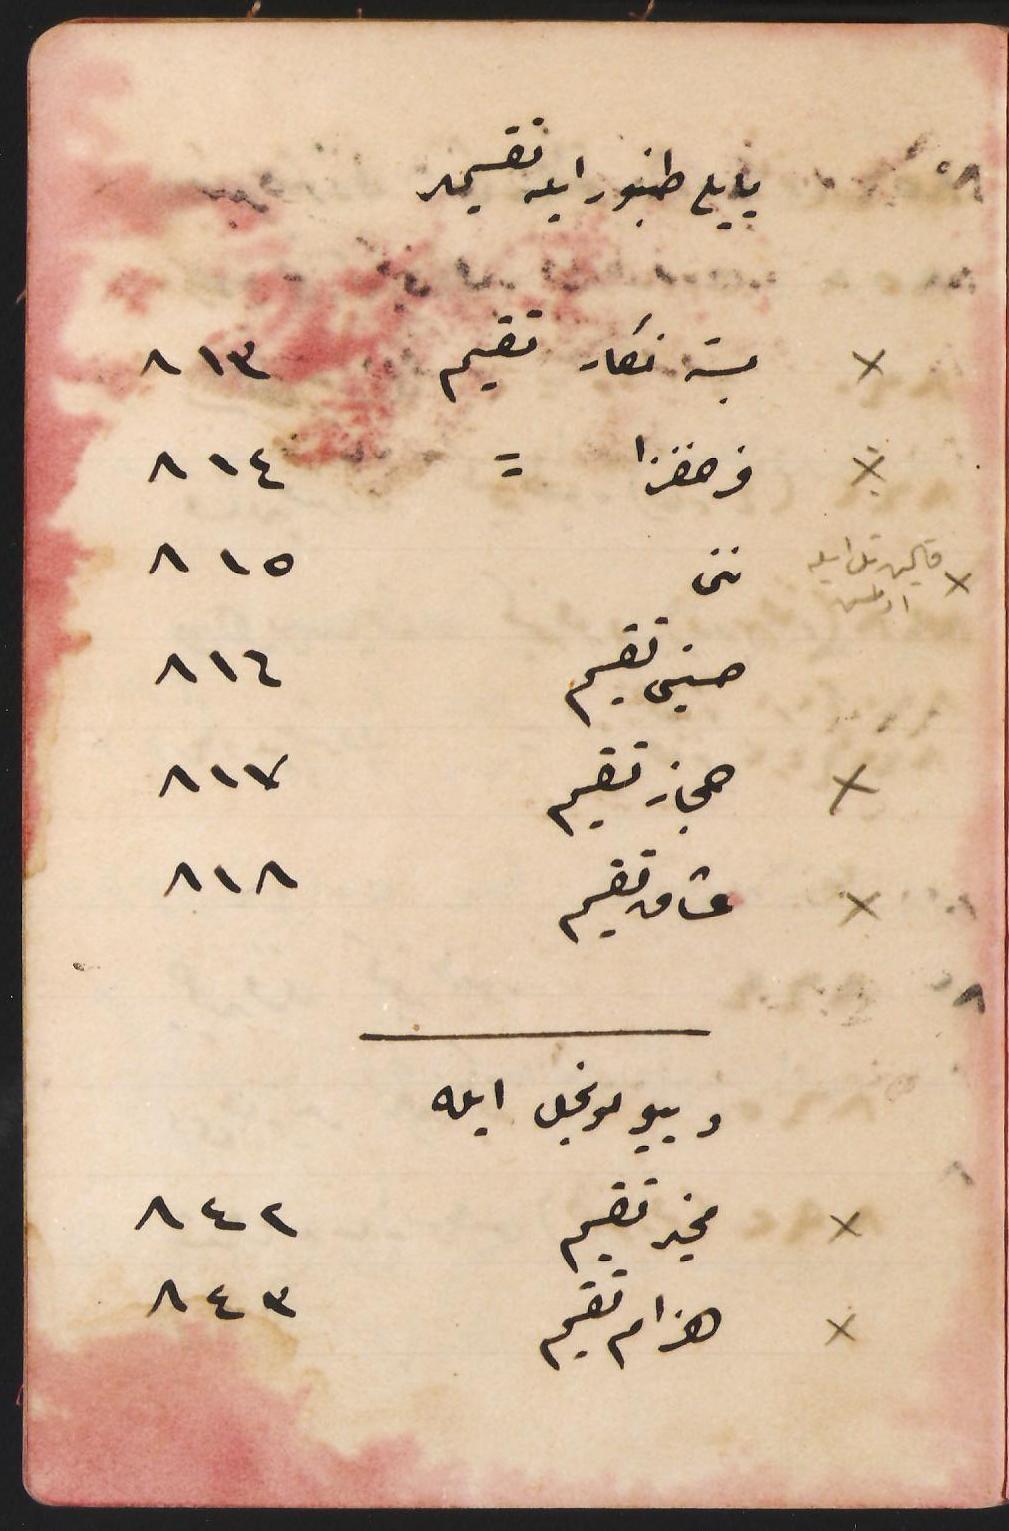 يايلى طنبور ايله تقسيملر
× بسته نكار تقسيم ٨١٣
× فرحفزا = ٨١٤
× قالين تل ايله
ننى ٨١٥
حسينى تقسيم ٨١٦
× حجاز تقسيم ٨١٧
× عشاق تقسيم ٨١٨
ويولونجل ايله
× مخير تقسيم ٨٤٢
× هزام تقسيم ٨٤٣